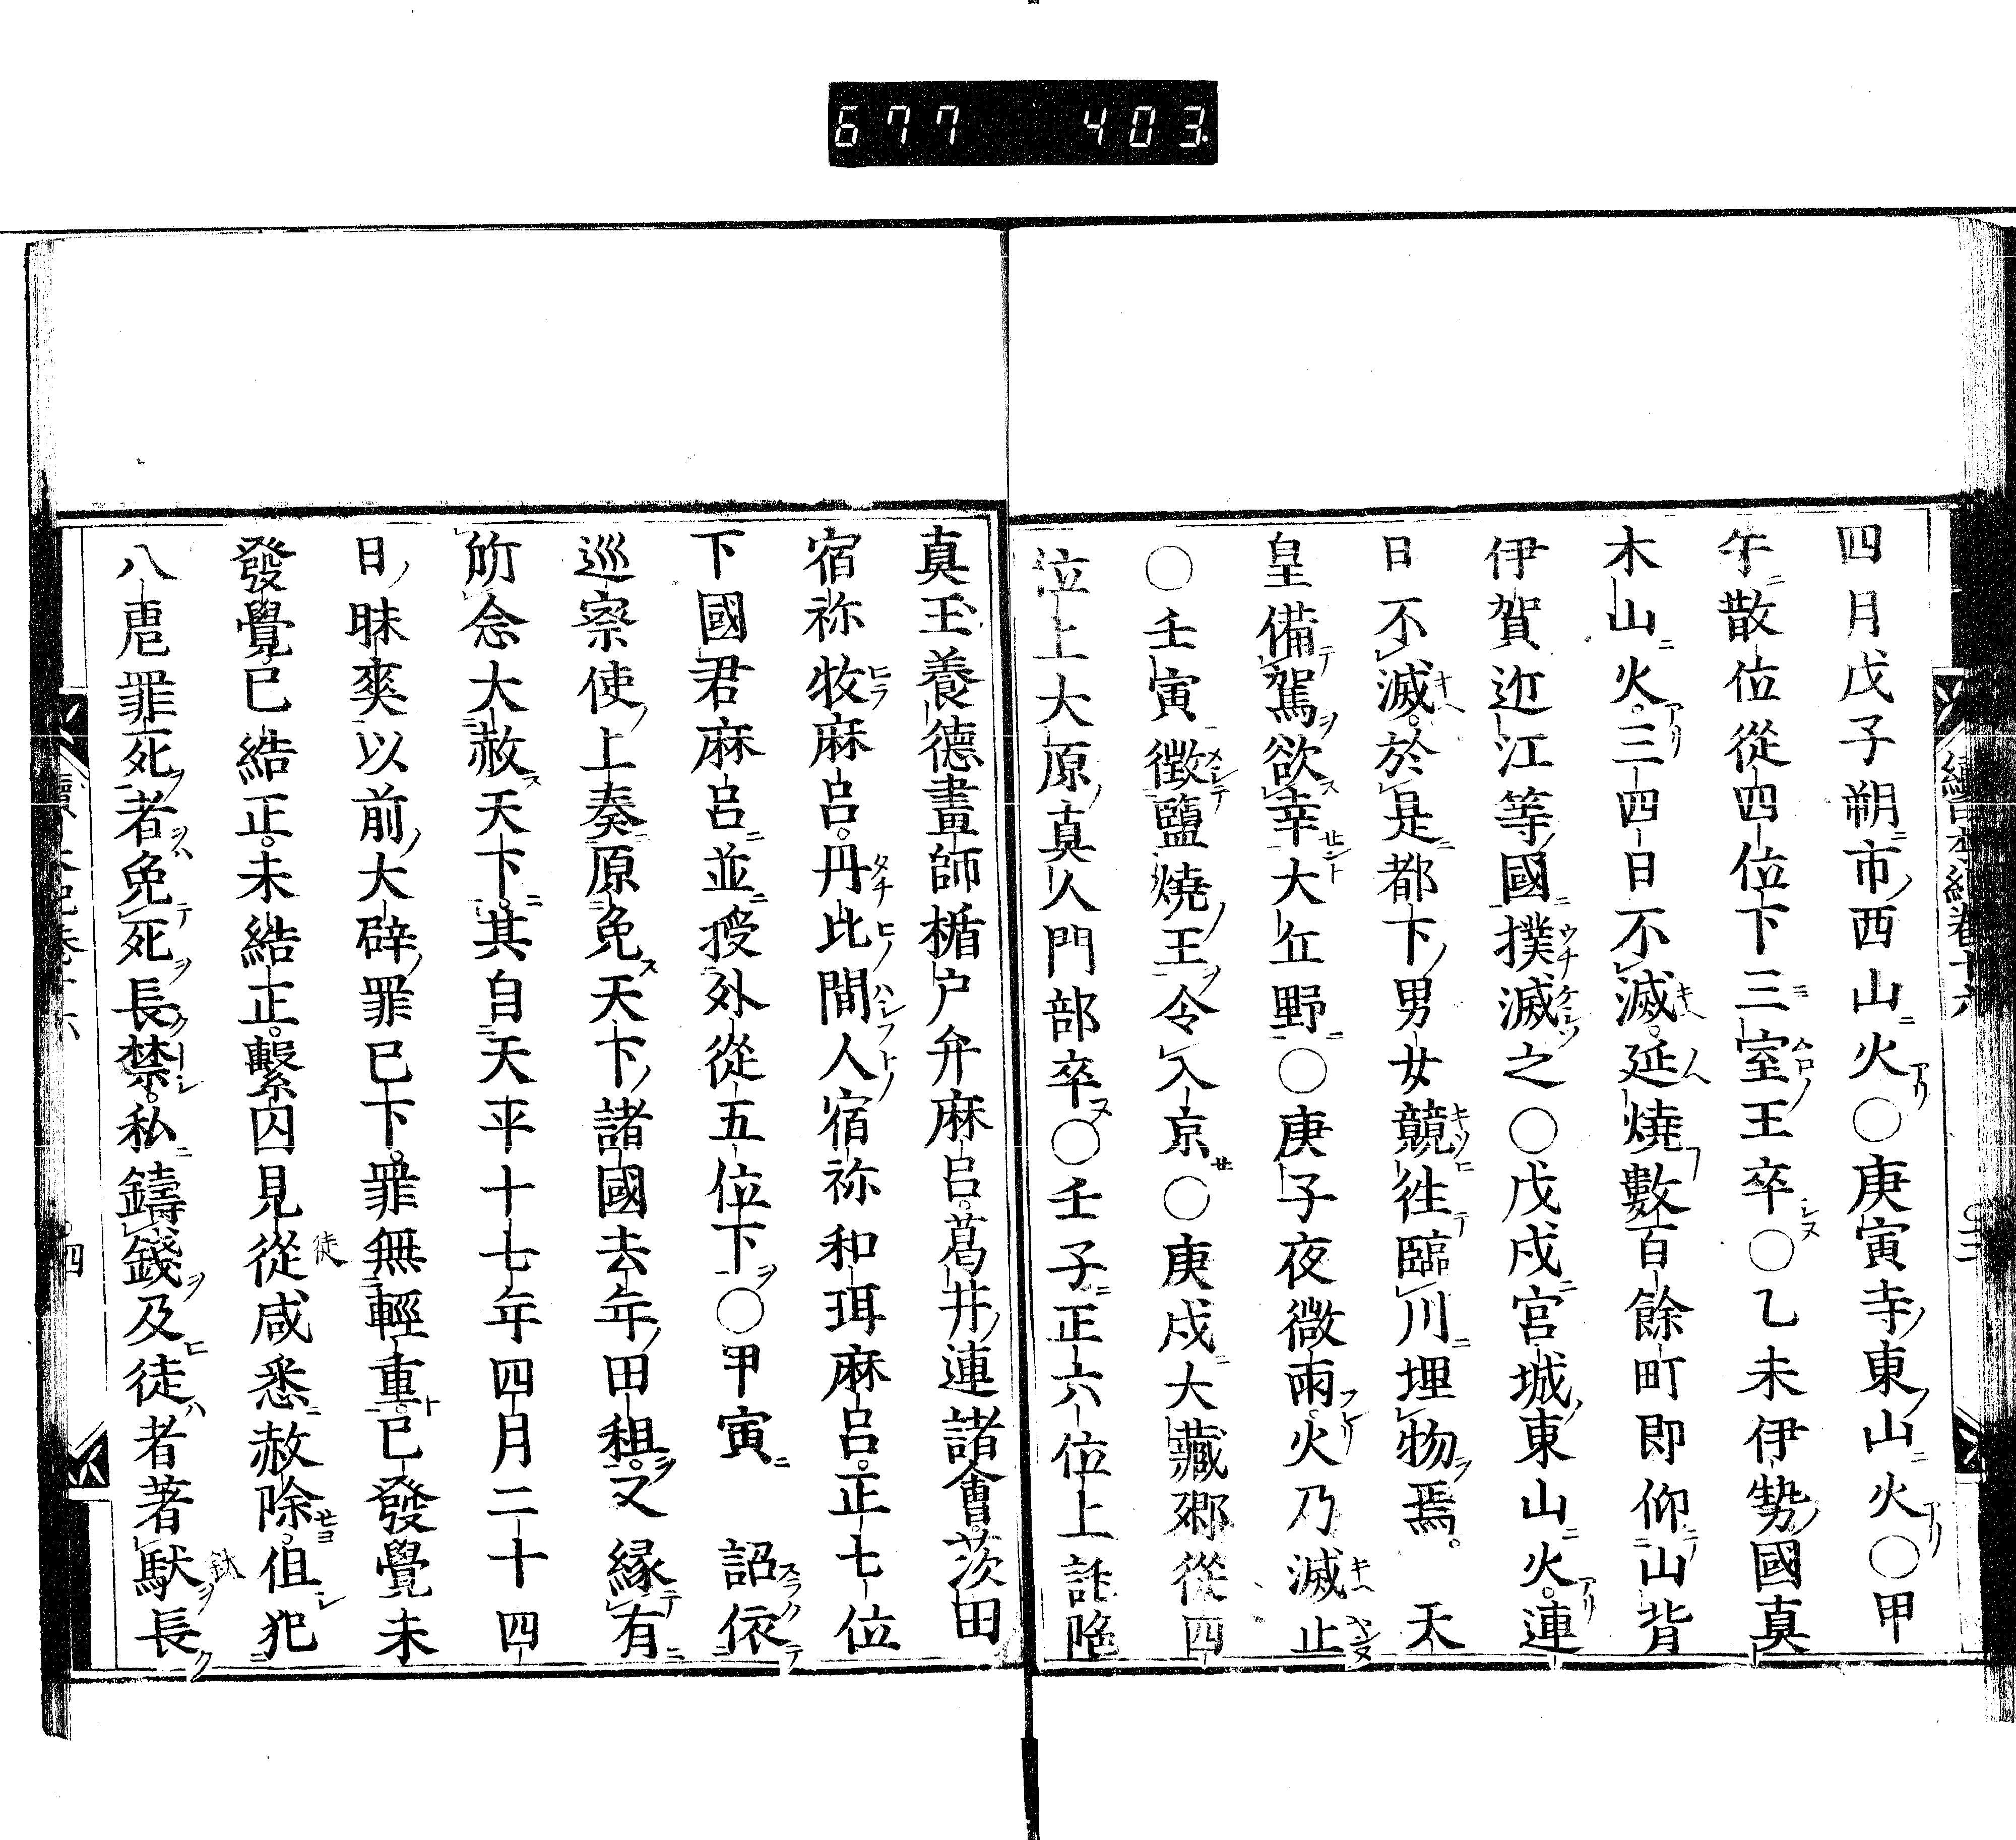 677 403.
續日本紀卷十六 ○三
四月戊子朔市西山火○庚寅寺東山火○甲
午散位從四位下三室王卒○乙未伊勢國真
木山火。三四日不滅。延燒數百餘町即仰山背
伊賀近江等國撲滅之○戊戌宮城東山火。連
日不滅。於是都下男女競往臨川埋物焉。天
皇備駕欲幸大丘野○庚子夜微雨。火乃滅止
○壬寅徵鹽燒王令入京○庚戌大藏卿從四
位上大原真人門部卒○壬子正六位上託陁
真玉養德畫師楯戶弁麻呂。葛井連諸會。茨田
宿祢牧麻呂。丹比間人宿祢和珥麻呂。正七位
下國君麻呂並授外從五位下○甲寅 詔依
巡察使上奏原免天下諸國去年田租。又緣有
所念大赦天下。其自天平十七年四月二十四
日昧爽以前大辟罪已下。罪無輕重。已發覺未
發覺已結正。未結正。繫囚見從咸悉赦除。但犯
八虐罪死者免死長禁。私鑄錢及徒者著馱長